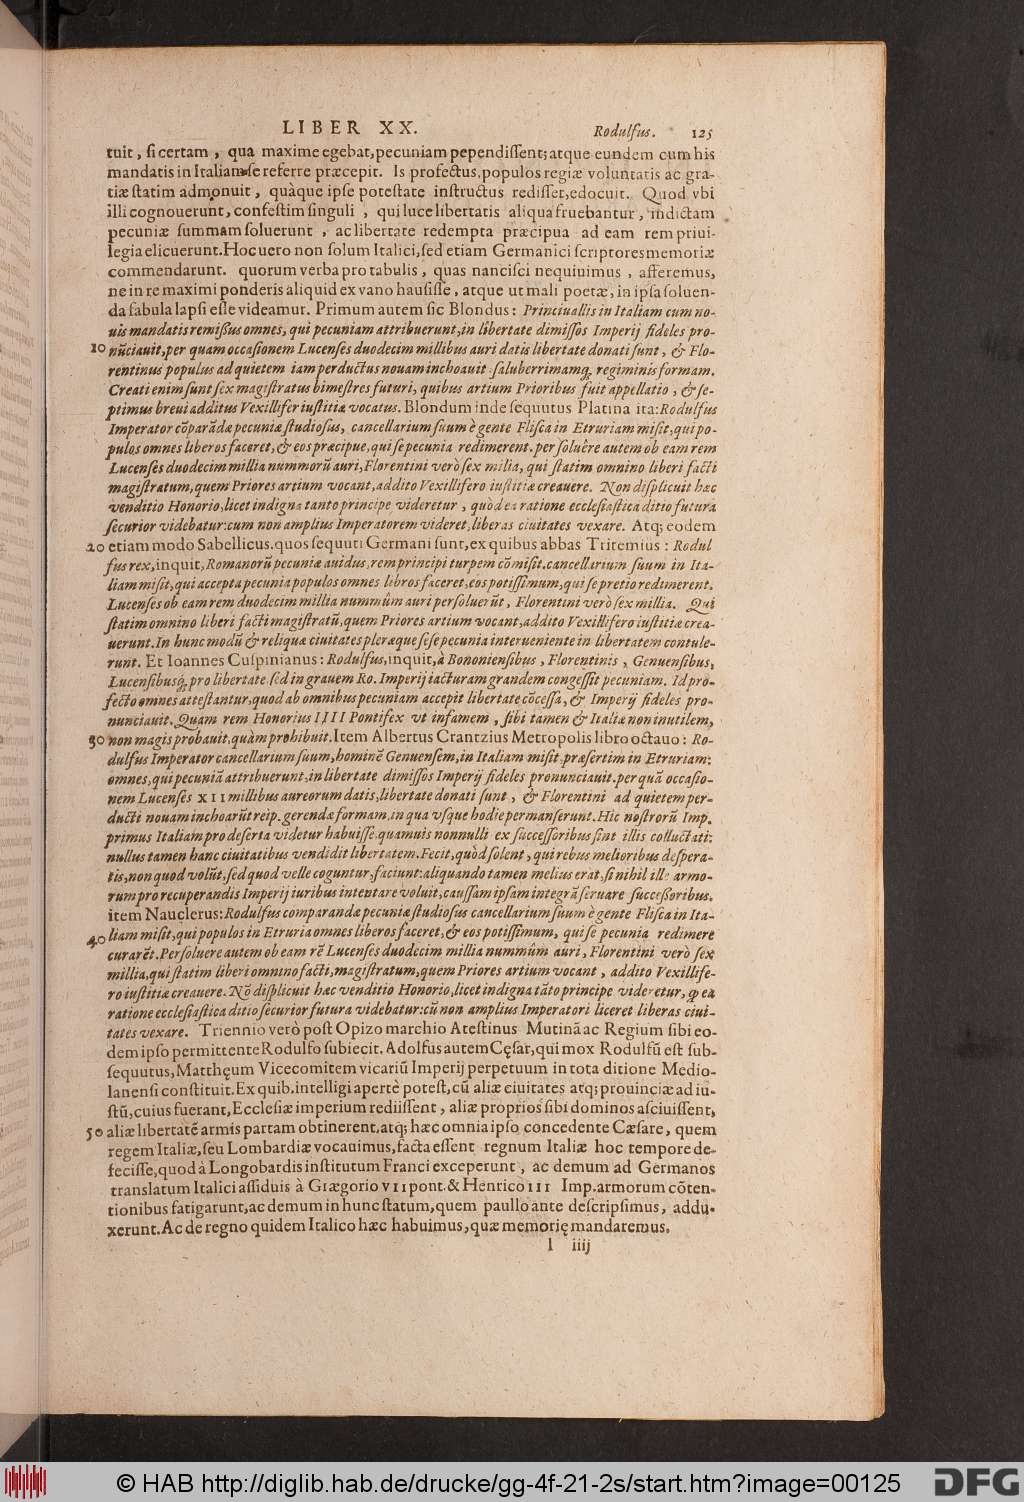 LIBER XX. Rodulfus. 125
tuit, si certam, qua maxime egebat, pecuniam pependissent; atque eundem cum his
mandatis in Italiam se referre præcepit. Is profectus, populos regiæ voluntatis ac gra-
tiæ statim admonuit, quàque ipse potestate instructus redisset, edocuit. Quod vbi
illi cognouerunt, confestim singuli, qui luce libertatis aliqua fruebantur, indictam
pecuniæ summam soluerunt, ac libertate redempta præcipua ad eam rem priui-
legia elicuerunt. Hoc uero non solum Italici, sed etiam Germanici scriptores memoriæ
commendarunt. quorum verba pro tabulis, quas nancisci nequiuimus, afferemus,
ne in re maximi ponderis aliquid ex vano hausisse, atque ut mali poetæ, in ipsa soluen-
da fabula lapsi esse videamur. Primum autem sic Blondus: Princiuallis in Italiam cum no-
uis mandatis remißus omnes, qui pecuniam attribuerunt, in libertate dimissos Imperij fideles pro-
10 nūciauit, per quam occasionem Lucenses duodecim millibus auri datis libertate donati sunt, & Flo-
rentinus populus ad quietem iam perductus nouam inchoauit saluberrimamq; regiminis formam.
Creati enim sunt sex magistratus bimestres futuri, quibus artium Prioribus fuit appellatio, & se-
ptimus breui additus Vexillifer iustitiæ vocatus. Blondum inde sequutus Platina ita: Rodulfus
Imperator cōparādæ pecuniæ studiosus, cancellarium suum è gente Flisca in Etruriam misit, qui po-
pulos omnes liberos faceret, & eos præcipue, qui se pecunia redimerent. persoluêre autem ob eam rem
Lucenses duodecim millia nummorū auri, Florentini verò sex milia, qui statim omnino liberi facti
magistratum, quem Priores artium vocant, addito Vexillifero iustitiæ creauere. Non displicuit hæc
venditio Honorio, licet indigna tanto principe videretur, quòd ea ratione ecclesiastica ditio futura
securior videbatur: cum non amplius Imperatorem videret, liberas ciuitates vexare. Atq; eodem
20 etiam modo Sabellicus. quos sequuti Germani sunt, ex quibus abbas Tritemius: Rodul
fus rex, inquit, Romanorū pecuniæ auidus, rem principi turpem cōmisit. cancellarium suum in Ita-
liam misit, qui accepta pecunia populos omnes libros faceret, eos potissimum, qui se pretio redimerent.
Lucenses ob eam rem duodecim millia nummûm auri persoluerūt, Florentini verò sex millia. Qui
statim omnino liberi facti magistratū, quem Priores artium vocant, addito Vexillifero iustitiæ crea-
uerunt. In hunc modū & reliquæ ciuitates pleræque sese pecunia interueniente in libertatem contule-
runt. Et Ioannes Cuspinianus: Rodulfus, inquit, à Bononiensibus, Florentinis, Genuensibus,
Lucensibusq; pro libertate sed in grauem Ro. Imperij iacturam grandem congessit pecuniam. Id pro-
fecto omnes attestantur, quod ab omnibus pecuniam accepit libertate cōcessa, & Imperij fideles pro-
nunciauit. Quam rem Honorius IIII Pontifex vt infamem, sibi tamen & Italiæ non inutilem,
30 non magis probauit, quàm prohibuit. Item Albertus Crantzius Metropolis libro octauo: Ro-
dulfus Imperator cancellarium suum, hominē Genuensem, in Italiam misit præsertim in Etruriam:
omnes, qui pecuniā attribuerunt, in libertate dimissos Imperij fideles pronunciauit. per quā occasio-
nem Lucenses XII millibus aureorum datis, libertate donati sunt, & Florentini ad quietem per-
ducti nouam inchoarūt reip. gerendæ formam, in qua vsque hodie permanserunt. Hic nostrorū Imp.
primus Italiam pro deserta videtur habuisse. quamuis nonnulli ex successoribus sint illis colluctati:
nullus tamen hanc ciuitatibus vendidit libertatem. Fecit, quòd solent, qui rebus melioribus despera-
tis, non quod volūt, sed quod velle coguntur, faciunt: aliquando tamen melius erat, si nihil ille armo-
rum pro recuperandis Imperij iuribus intentare voluit, caussam ipsam integrā seruare succeßoribus.
item Nauclerus: Rodulfus comparandæ pecuniæ studiosus cancellarium suum è gente Flisca in Ita-
40 liam misit, qui populos in Etruria omnes liberos faceret, & eos potissimum, qui se pecunia redimere
curarēt. Persoluere autem ob eam rē Lucenses duodecim millia nummûm auri, Florentini verò sex
millia, qui statim liberi omnino facti, magistratum, quem Priores artium vocant, addito Vexillife-
ro iustitiæ creauere. Nō displicuit hæc venditio Honorio, licet indigna tāto principe videretur, ꝙ ea
ratione ecclesiastica ditio securior futura videbatur: cū non amplius Imperatori liceret liberas ciui-
tates vexare. Triennio verò post Opizo marchio Atestinus Mutinā ac Regium sibi eo-
dem ipso permittente Rodulfo subiecit. Adolfus autem Cęsar, qui mox Rodulfū est sub-
sequutus, Matthęum Vicecomitem vicariū Imperij perpetuum in tota ditione Medio-
lanensi constituit. Ex quib. intelligi apertè potest, cū aliæ ciuitates atq; prouinciæ ad iu-
stū, cuius fuerant, Ecclesiæ imperium rediissent, aliæ proprios sibi dominos asciuissent,
50 aliæ libertatē armis partam obtinerent, atq; hæc omnia ipso concedente Cæsare, quem
regem Italiæ, seu Lombardiæ vocauimus, facta essent regnum Italiæ hoc tempore de-
fecisse, quod à Longobardis institutum Franci exceperunt, ac demum ad Germanos
translatum Italici assiduis à Grægorio VII pont. & Henrico III Imp. armorum cōten-
tionibus fatigarunt, ac demum in hunc statum, quem paullo ante descripsimus, addu-
xerunt. Ac de regno quidem Italico hæc habuimus, quæ memorię mandaremus.
l iiij
© HAB http://diglib.hab.de/drucke/gg-4f-21-2s/start.htm?image=00125
DFG